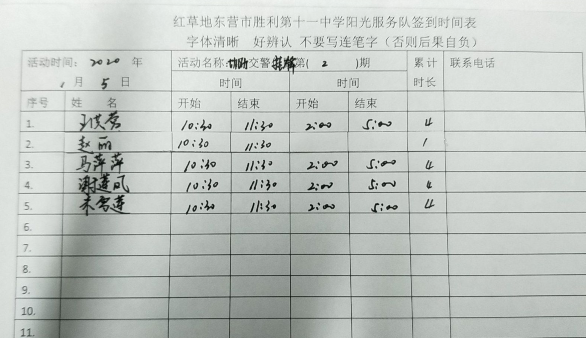 红草地东营市胜利第十一中学阳光服务队签到时间表
字体清晰 好辨认 不要写连笔字（否则后果自负）
活动时间：2020 年 活动名称： 交警 第（ 2 ）期 累计 联系电话
月 5 日 时间 时间 时长
序号 姓 名 开始 结束 开始 结束
1. 10:30 11:30 2:00 5:00 4
2. 赵丽 10:30 11:30 1
3. 马萍萍 10:30 11:30 2:00 5:00 4
4. 谢莲凤 10:30 11:30 2:00 5:00 4
5. 10:30 11:30 2:00 5:00 4
6.
7.
8.
9.
10.
11.